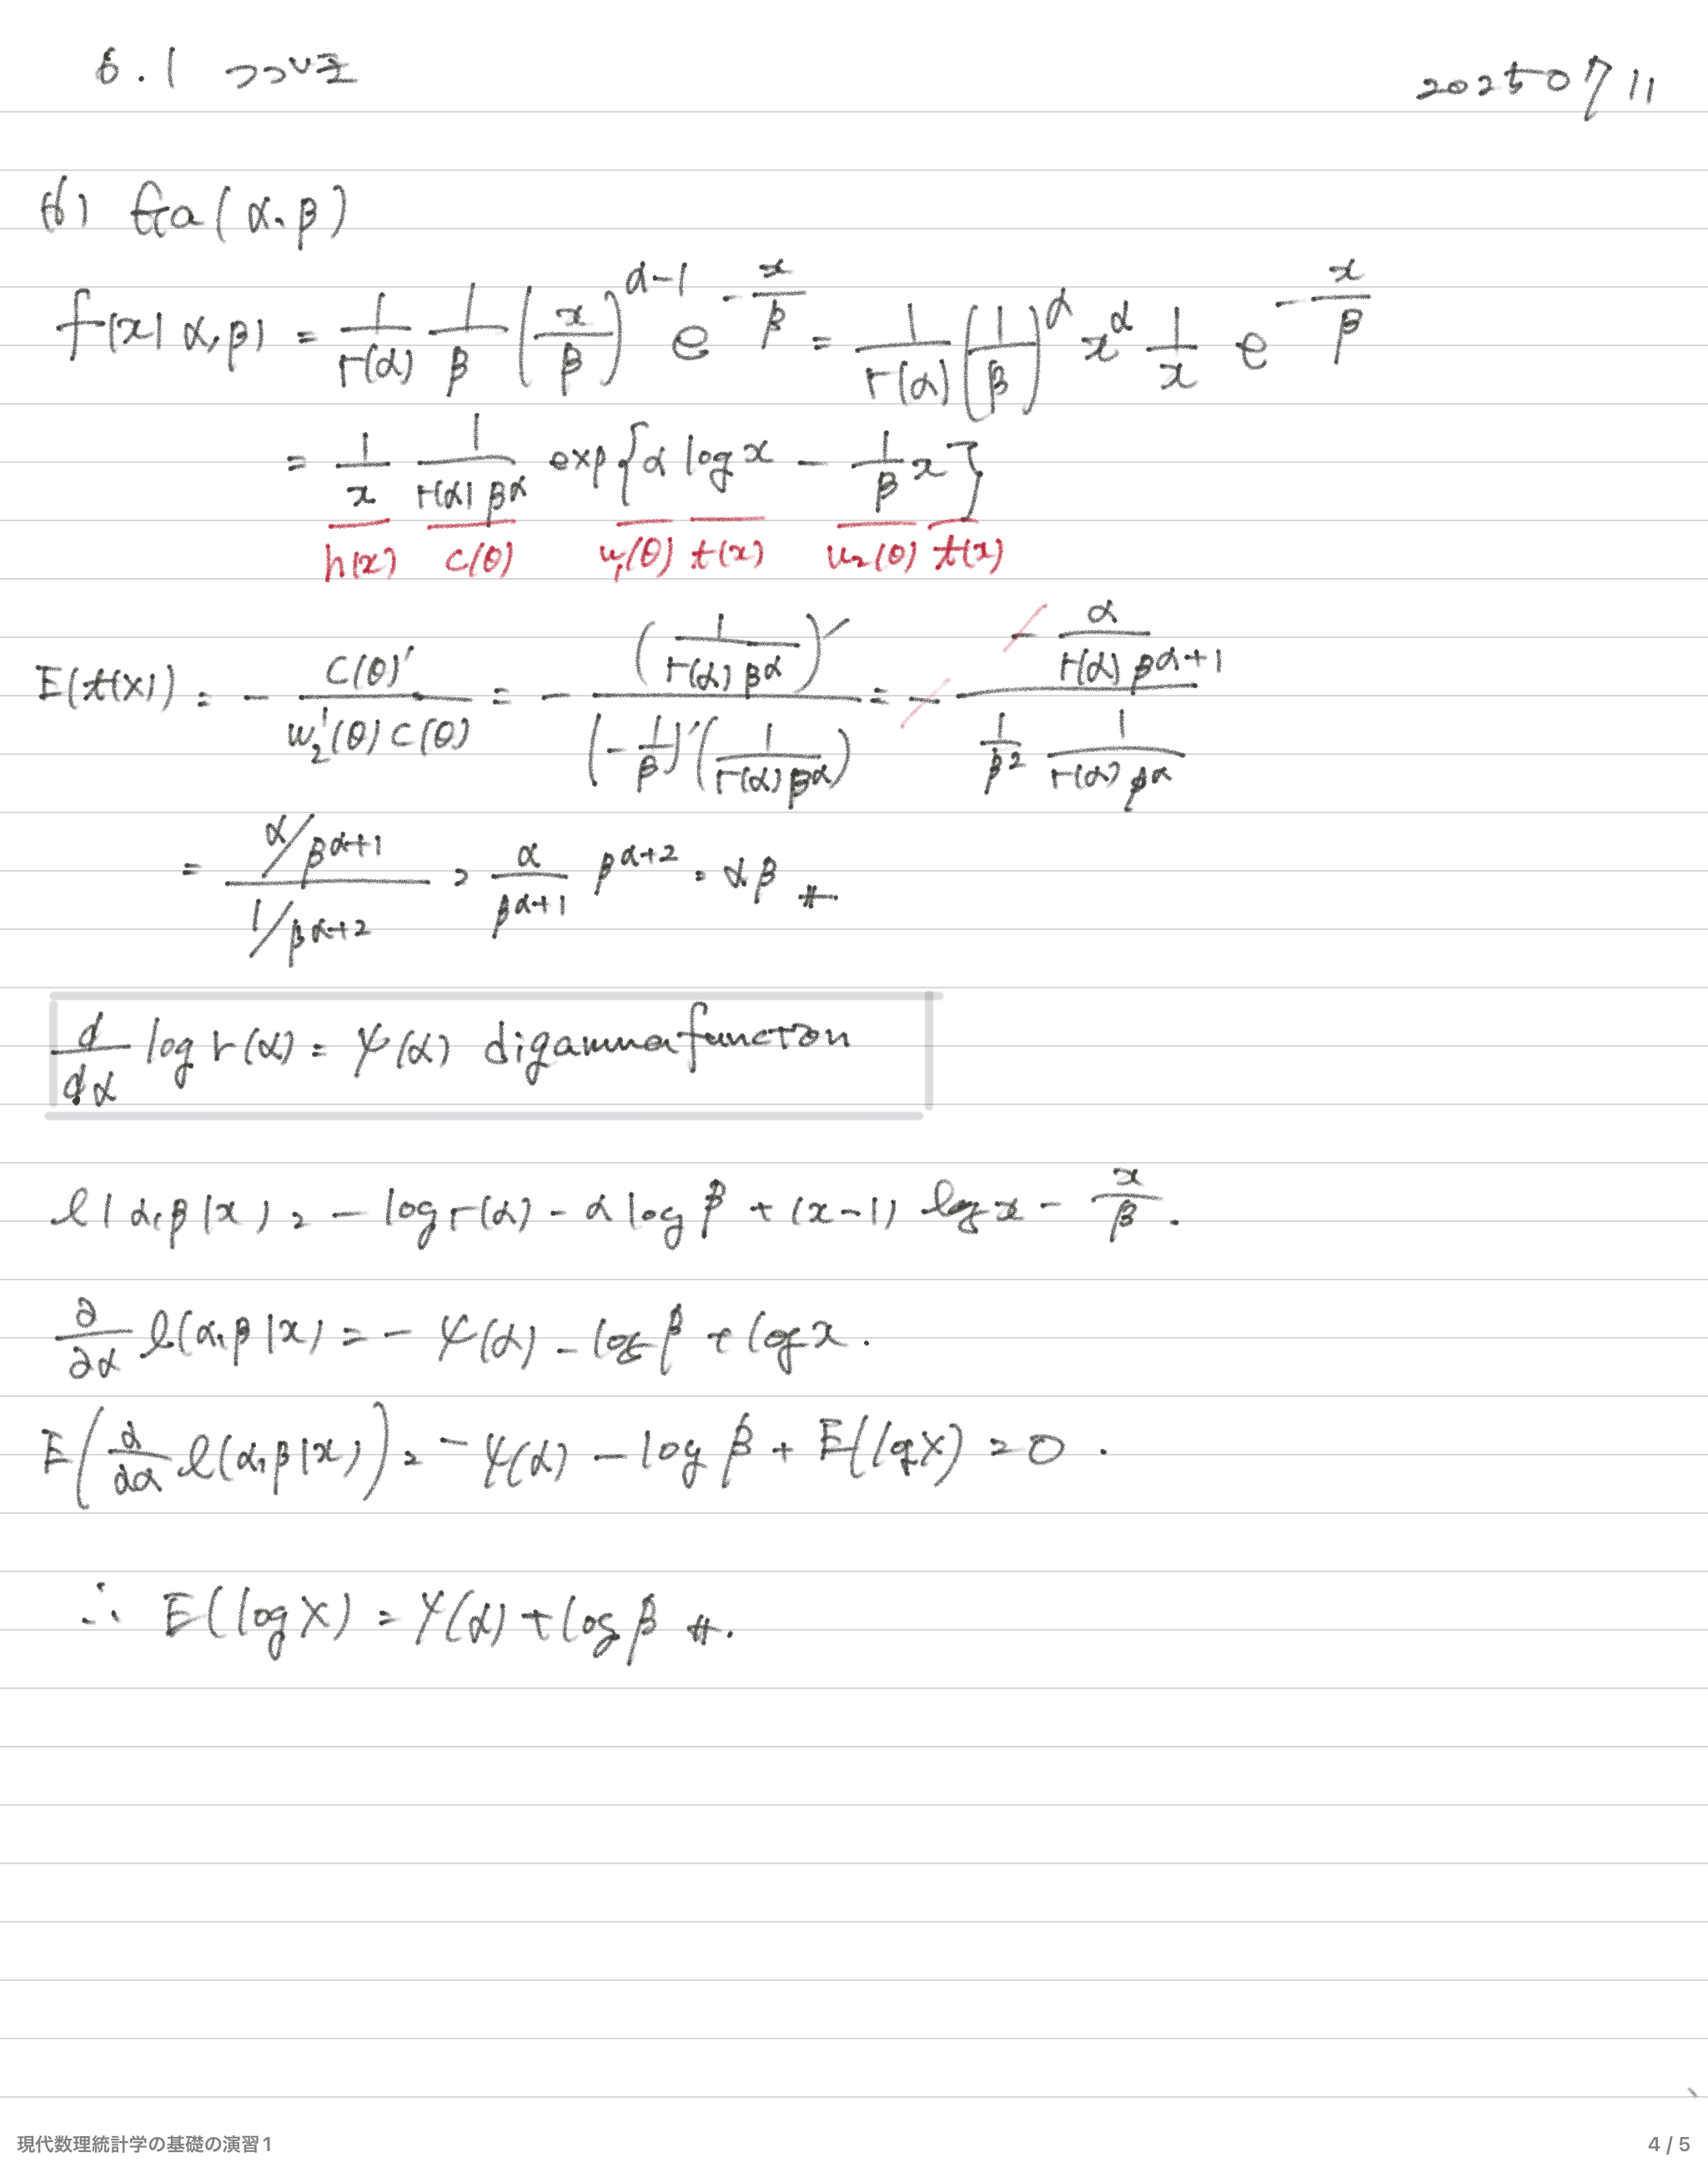 6.1 つづき
20250711
(6) Ga(α, β)
f(x| α, β) = 1/Γ(α) 1/β (x/β)^{α-1} e^{-x/β} = 1/Γ(α) (1/β)^α x^α 1/x e^{-x/β}
= 1/x 1/(Γ(α) β^α) exp{α log x - 1/β x}
h(x) c(θ) w₁(θ) t(x) w₂(θ) t(x)
E(t(X)) = - C(θ)′/(w₂′(θ) C(θ)) = - (1/(Γ(α) β^α))′/((-1/β)′(1/(Γ(α) β^α))) = - (- α/(Γ(α) β^{α+1}))/(1/β² 1/(Γ(α) β^α))
= (α/β^{α+1})/(1/β^{α+2}) = α/β^{α+1} β^{α+2} = αβ #
d/dα log Γ(α) = ψ(α) digamma function
l(α, β|x) = - log Γ(α) - α log β + (x-1) log x - x/β.
∂/∂α l(α, β|x) = - ψ(α) - log β + log x.
E(∂/∂α l(α, β|x)) = - ψ(α) - log β + E(log X) = 0.
∴ E(log X) = ψ(α) + log β #.
現代数理統計学の基礎の演習1
4 / 5